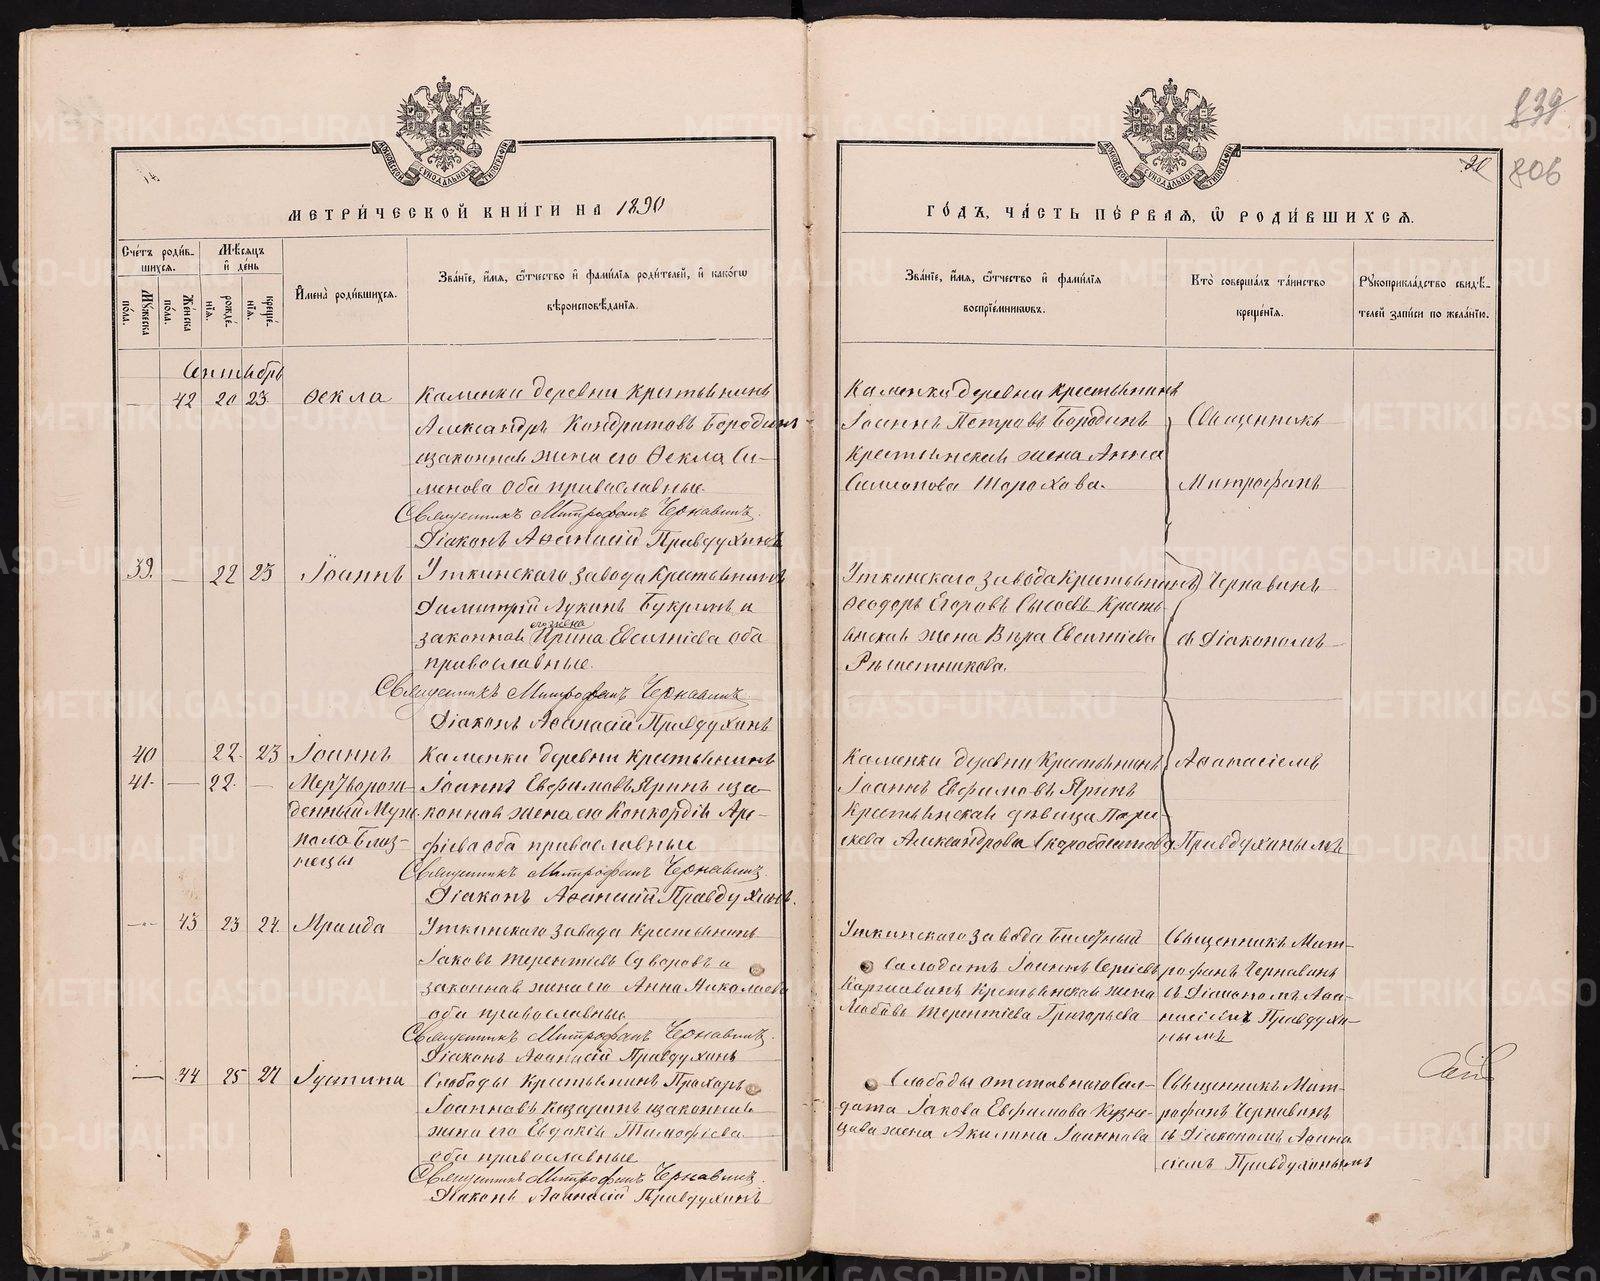 839
806
20
14
МЕТРИ́ЧЕСКОЙ КНИ́ГИ НА 1890
Сче́тъ роди́в-
шихся.
Мѣ́сяцъ
и҆ де́нь
Му́жеска
по́ла.
Же́нска
по́ла.
рожде́-
нїѧ.
креще́-
нїѧ.
И҆мена̀ роди́вшихсѧ.
Зва́нїе, и҆́мѧ, ѻ҆́тчество и҆ фами́лїѧ роди́телей, и҆ како́гѡ
вѣроисповѣ́данїѧ.
Сентябрь
— 42 20 23. Ѳекла Каменки деревни крестьянинъ
Александръ Кондратовъ Бородинъ
изаконная жена его Ѳекла Си-
менова оба православные.
Священникъ Митрофанъ Чернавинъ.
Діаконъ Аѳанасій Правдухинъ
39. — 22 23 Іоаннъ Уткинскаго завода крестьянинъ
Димитрій Лукинъ Букринъ и
законная его жена Ирина Евсигніева оба
православные.
Священникъ Митрофанъ Чернавинъ
Діаконъ Аѳанасій Правдухинъ
40 22. 23 Іоаннъ Каменки деревни крестьянинъ
41. — 22. — Мертворож- Іоаннъ Евфимовъ Яринъ иза-
денный Муж. конная жена его Конкордія Аре-
пола Близ- фіева оба православные
нецы
Священникъ Митрофанъ Чернавинъ
Діаконъ Аѳанасій Правдухинъ.
— 43 23 24. Ираида Уткинскаго завода крестьянинъ
Іаковъ Терентіевъ Суворовъ и
законная жена его Анна Николаева
оба православные
Священникъ Митрофанъ Чернавинъ.
Діаконъ Аѳанасій Правдухинъ
— 44 25 27 Іустина Слободы крестьянинъ Прохоръ
Іоанновъ Казаринъ изаконная
жена его Евдокія Тимофіева
оба православные
Священникъ Митрофанъ Чернавинъ.
Діаконъ Аѳанасій Правдухинъ
ГО́ДЪ, ЧА́СТЬ ПЕ́РВАѦ, Ѡ҆ РОДИ́ВШИХСѦ.
Зва́нїе, и҆́мѧ, ѻ҆́тчество и҆ фами́лїѧ
воспрїе́мникѡвъ.
Кто̀ соверша́лъ та́инство
креще́нїѧ.
Рꙋкоприкла́дство свидѣ́-
телей за́писи по жела́нїю.
Каменки деревни крестьянинъ
Іоаннъ Петровъ Бородинъ
крестьянская жена Анна
Симионова Шорохова.
Уткинскаго завода крестьянинъ
Ѳеодоръ Егоровъ Сысоевъ крестьянская жена Вѣра Евсигніева
Рѣшетникова.
Каменки деревни крестьянинъ
Іоаннъ Евфимовъ Яринъ
крестьянская дѣвица Пара-
скева Александрова Скоробогатова
Священникъ
Митрофанъ
Чернавинъ
съ Діакономъ
Аѳанасіемъ
Правдухинымъ
Уткинскаго завода Билетный
Салодатъ Іоаннъ Сергіевъ
Каргаавинъ крестьянская жена
Любовь Терентіева Григорьева
Священникъ Мит-
рофанъ Чернавинъ
съ Діакономъ Аѳа-
насіемъ Правдухи-
нымъ
Слободы отставнаго Сал-
дата Іакова Евфимова Кузне-
цова жена Акилина Іоаннова
Священникъ Мит-
рофанъ Чернавинъ
съ Діакономъ Аѳана
сіемъ Правдухинымъ